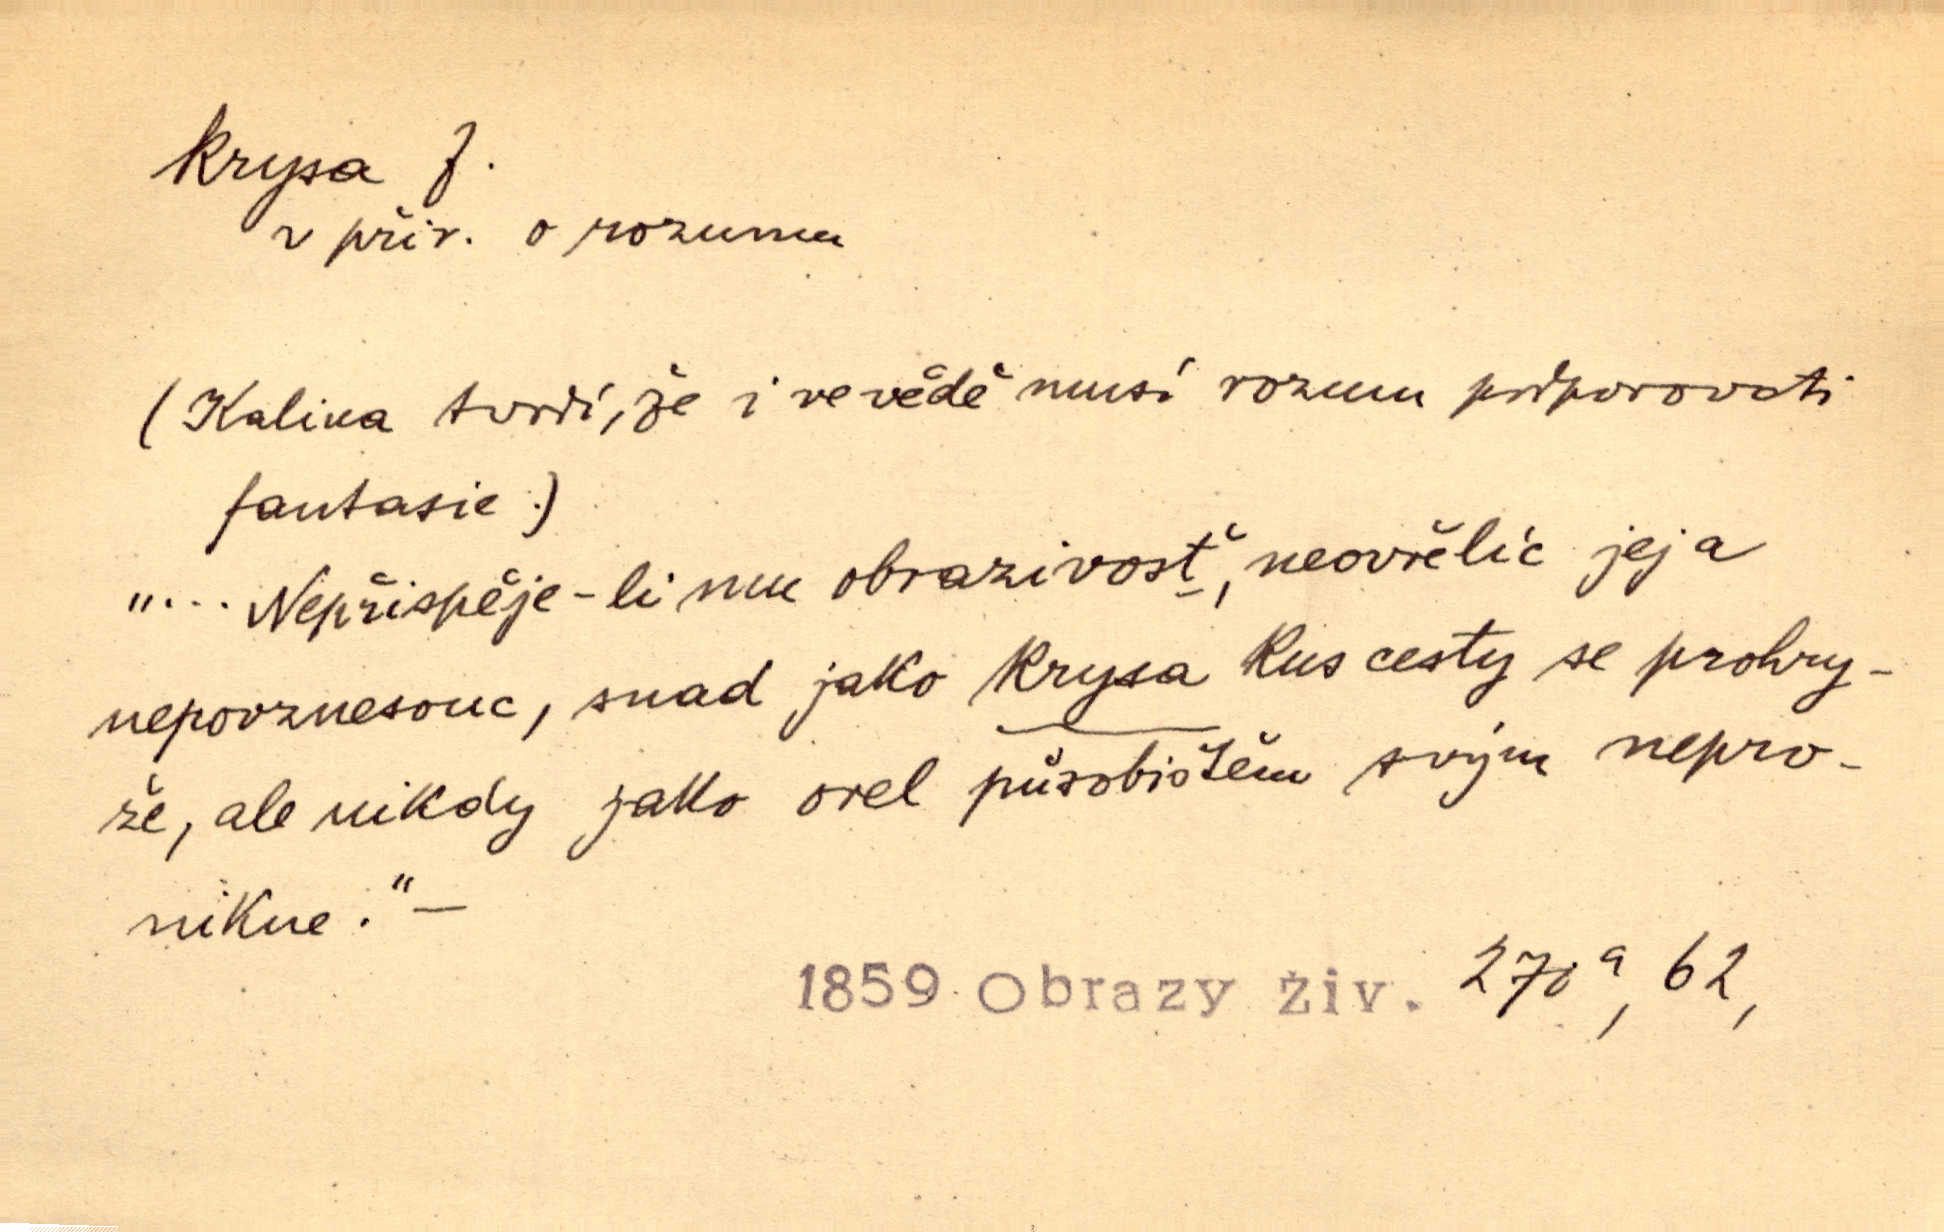 krysa f.
v přir. o rozumu
(Kalina tvrdí, že i ve vědě musí rozum podporovati
fantasie.)
"... Nepřispěje-li mu obrazivosť, neovřělíc jej a
nepovznesouc, snad jako krysa kus cesty se prohry-
že, ale nikdy jako orel působištěm svým nepro-
nikne." —
1859 Obrazy živ. 270a, 62,